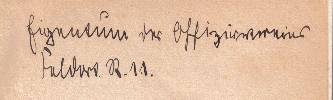 Eigentum der Offiziersvereins
Feldart. R. 11.